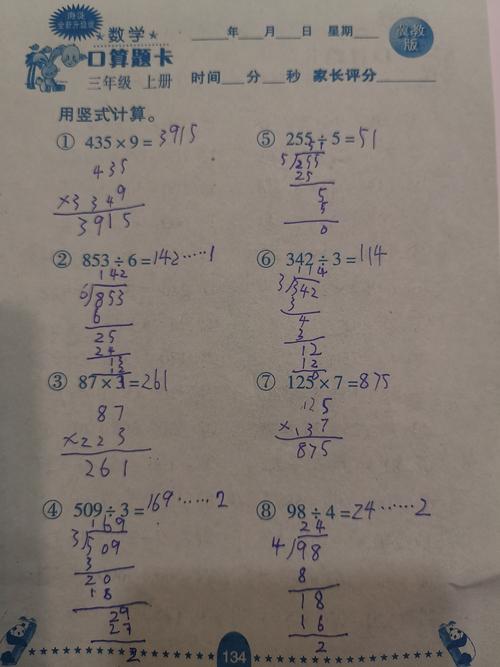 海淀
全新升级版
数学
口算题卡
三年级 上册
____年____月____日 星期____
冀教版
时间____分____秒 家长评分________
用竖式计算。
① 435×9=3915
435
×3349
3915
② 853÷6=142……1
142
6 853
6
25
24
13
12
③ 87×3=261
87
×223
261
④ 509÷3=169……2
169
3 509
3
20
18
29
27
2
⑤ 255÷5=51
51
5 255
25
5
5
0
⑥ 342÷3=114
114
3 342
3
4
3
12
12
0
⑦ 125×7=875
125
×137
875
⑧ 98÷4=24……2
24
4 98
8
18
16
2
134